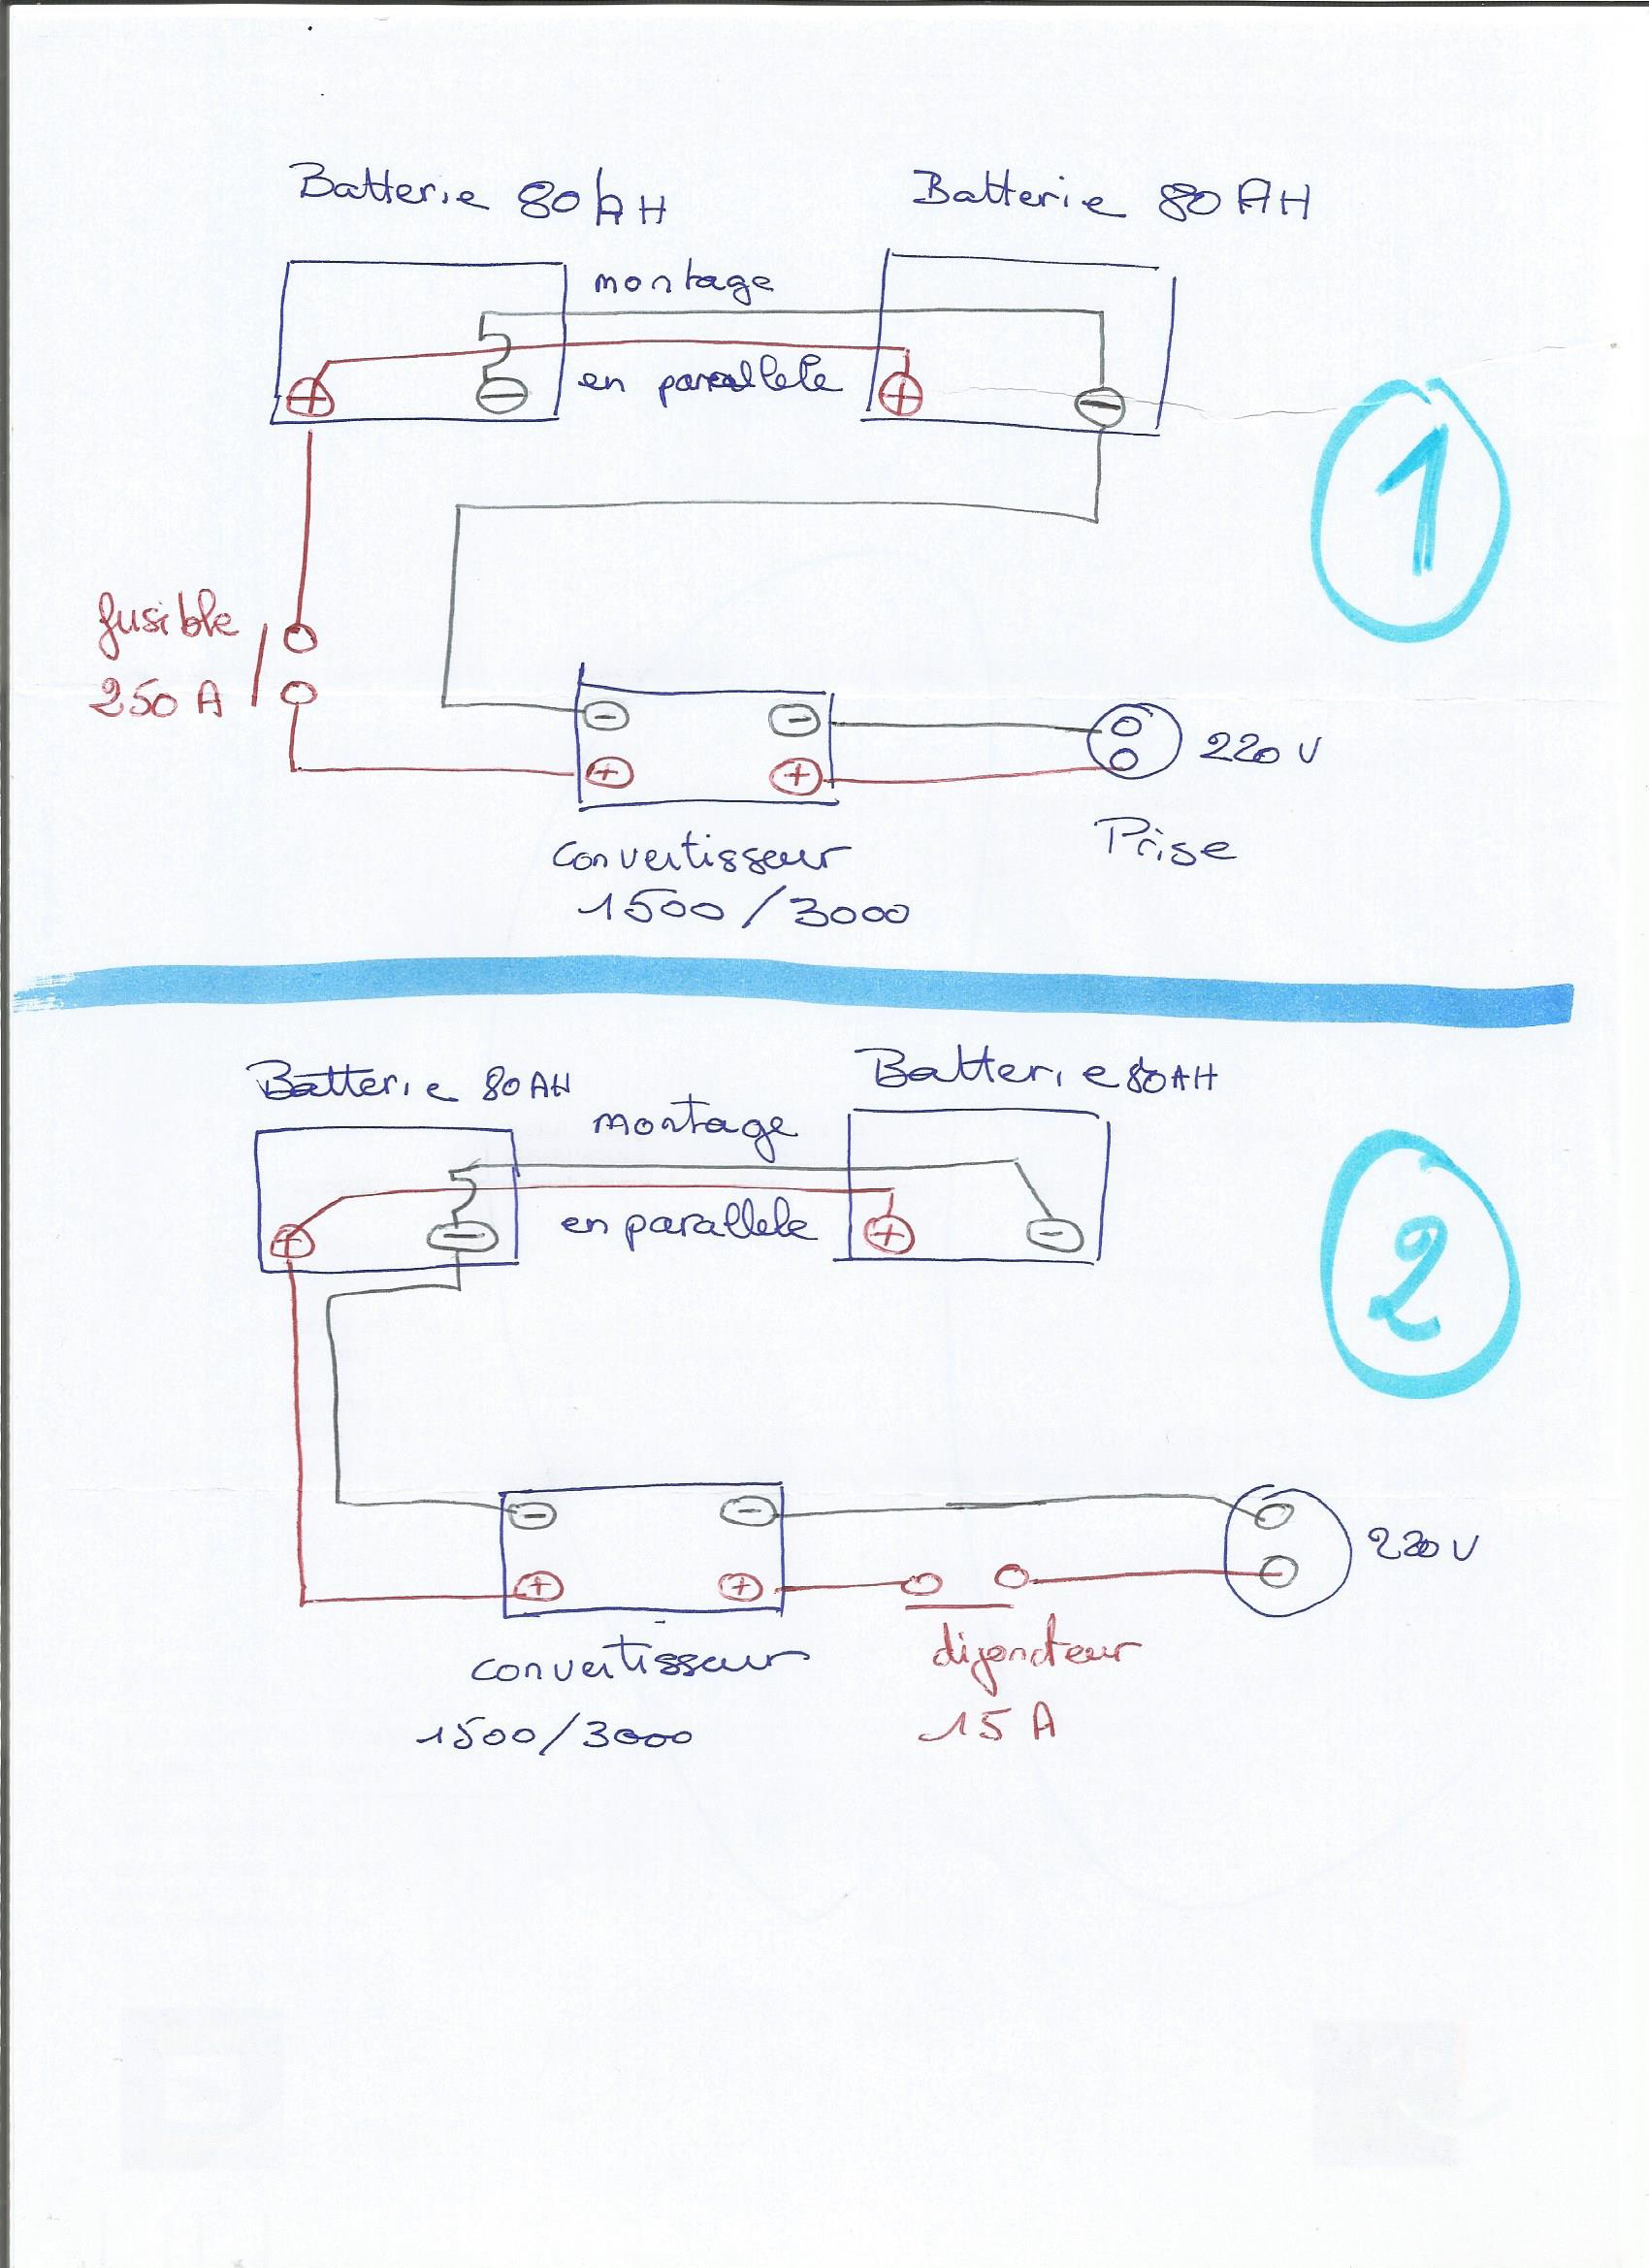 Batterie 80AH
Batterie 80AH
montage
en parallele
fusible
250 A
220 V
Prise
convertisseur
1500/3000
1
Batterie 80AH
Batterie 80AH
montage
en parallele
2
220 V
convertisseur
1500/3000
dijoncteur
15 A